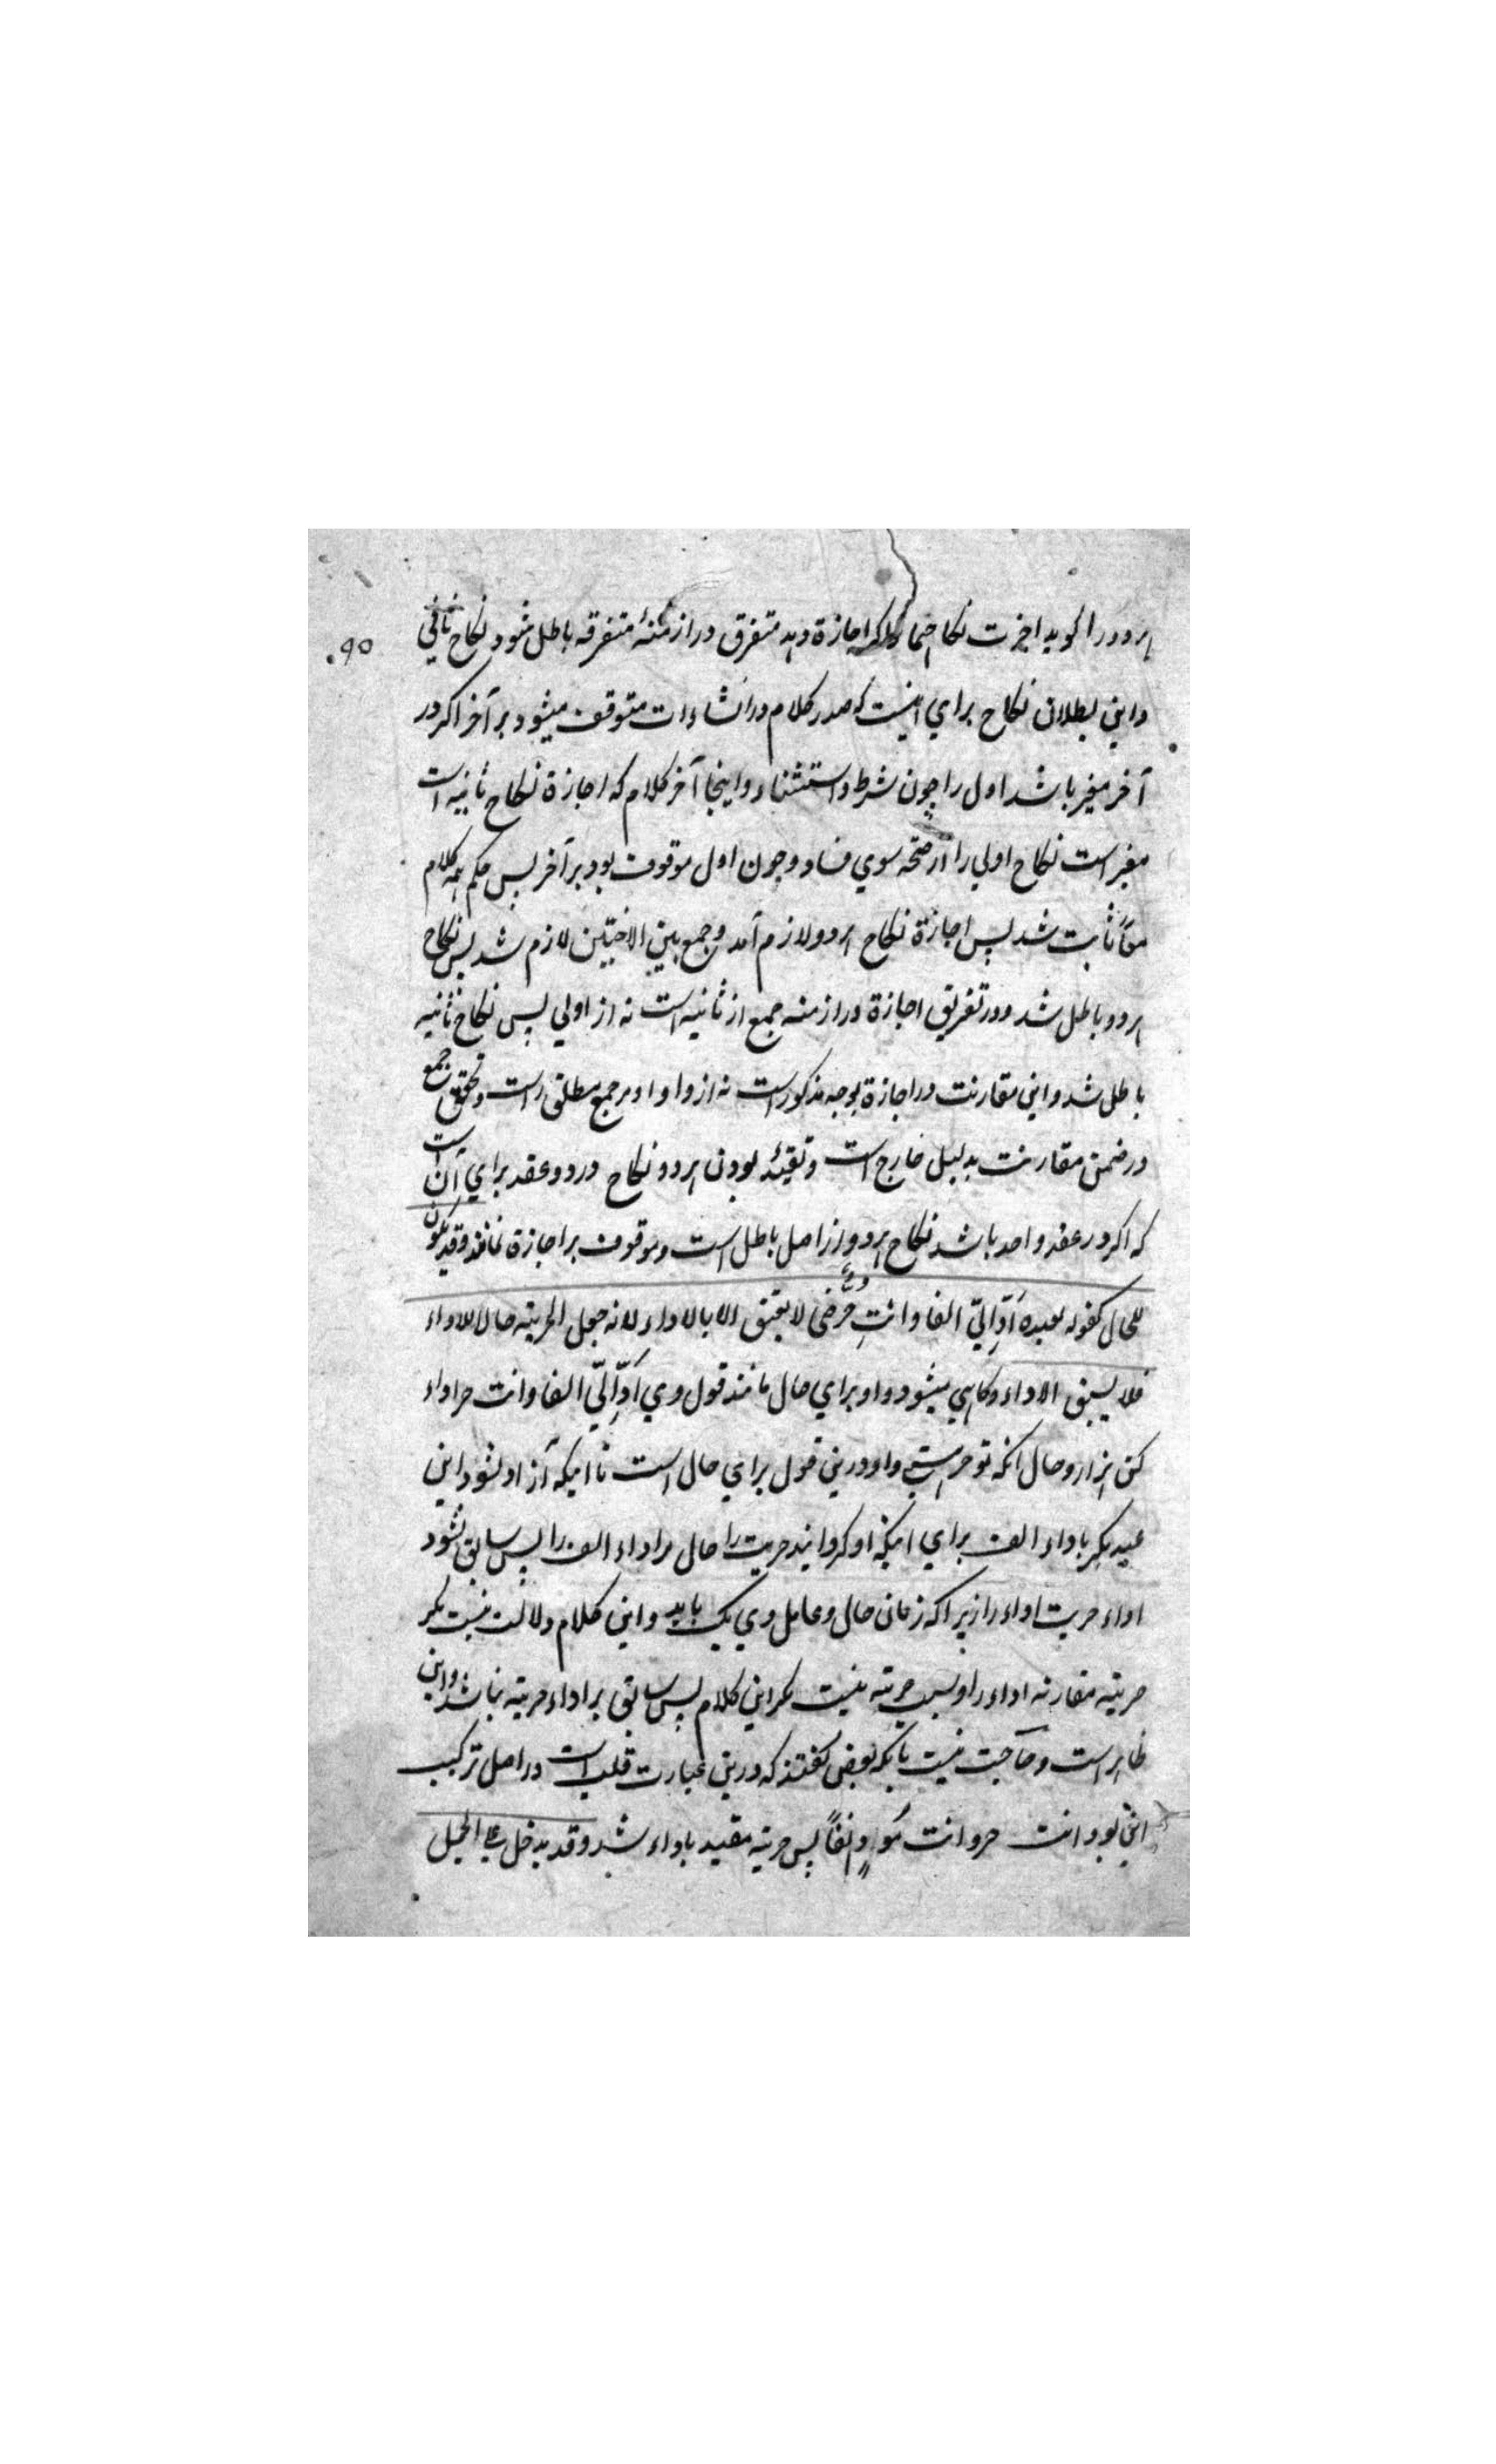 هر دو را گوید اجزت نکاحهما اگر اجازة دهد متفرق در ازمنهٔ متفرقه باطل شود نکاح ثانی
۹۵
و این بطلان نکاح برای اینست که صدر کلام در انشاءات متوقف میشود بر آخر اگر در
آخر مغیر باشد اول را چون شرط و استثناء و اینجا آخر کلام که اجازة نکاح ثانیه است
مغیر است نکاح اولی را از صحه سوی فساد و چون اول موقوف بود بر آخر پس حکم همه کلام
معاً ثابت شد پس اجازة نکاح هر دو لازم آمد و جمع بین الاختین لازم شد پس نکاح
هر دو باطل شد و در تفریق اجازة در ازمنه جمع از ثانیه است نه از اولی پس نکاح ثانیه
باطل شد و این مقارنت در اجازة بوجه مذکور است نه از واو و او بر جمع مطلق است و تحقق جمع
در ضمن مقارنت بدلیل خارج است و تقیید بودن هر دو نکاح در دو عقد برای آن است
که اگر در عقد واحد باشد نکاح هر دو از اصل باطل است و موقوف بر اجازة نماند وقد یکون
للحال کقوله لعبده أدّ إليّ الفا وانت حرّ حتى لا یعتق الا بالاداء لانه جعل الحریته حالا للاداء
فلا یسبق الاداء و کاهی میشود واو برای حال مانند قول وی أدّ إليّ الفا وانت حر اداء
کن هزار و حال آنکه تو حر استی واو درین قول برای حال است تا اینکه آزاد نشود این
عبد مگر باداء الف برای اینکه او گردانید حریت را حال مر اداء الف را پس سابق نشود
اداء حریت اداء را زیرا که زمان حال و عامل وی یک باید و این کلام دلالت نیست مگر
حریته مقارنه اداء را و سبب حریته نیست مگر این کلام پس سابق بر اداء حریته نباشد و این
ظاهر است و حاجت نیست بآنکه بعضی گفتند که درین عبارت قلب است در اصل ترکیب
این بود انت حر وانت مؤد الفاً پس حریته مقید باداء شد وقد یدخل علی الجمل